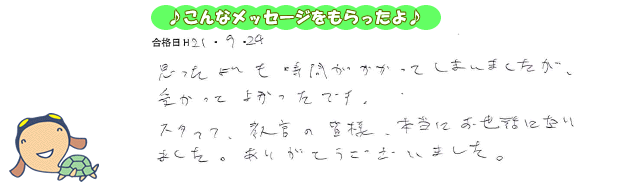 ♪こんなメッセージをもらったよ♪
合格日 H21・9・24
思ったよりも時間がかかってしまいましたが、
受かってよかったです。
スタッフ、教官の皆様、本当にお世話になり
ました。ありがとうございました。